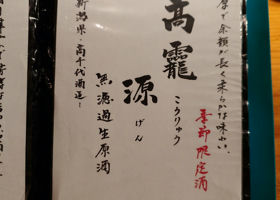 厚で余韻が長く柔らかな味わい。
季節限定酒
高龗
こうりゅう
源
げん
無濾過生原酒
新潟県・高千代酒造